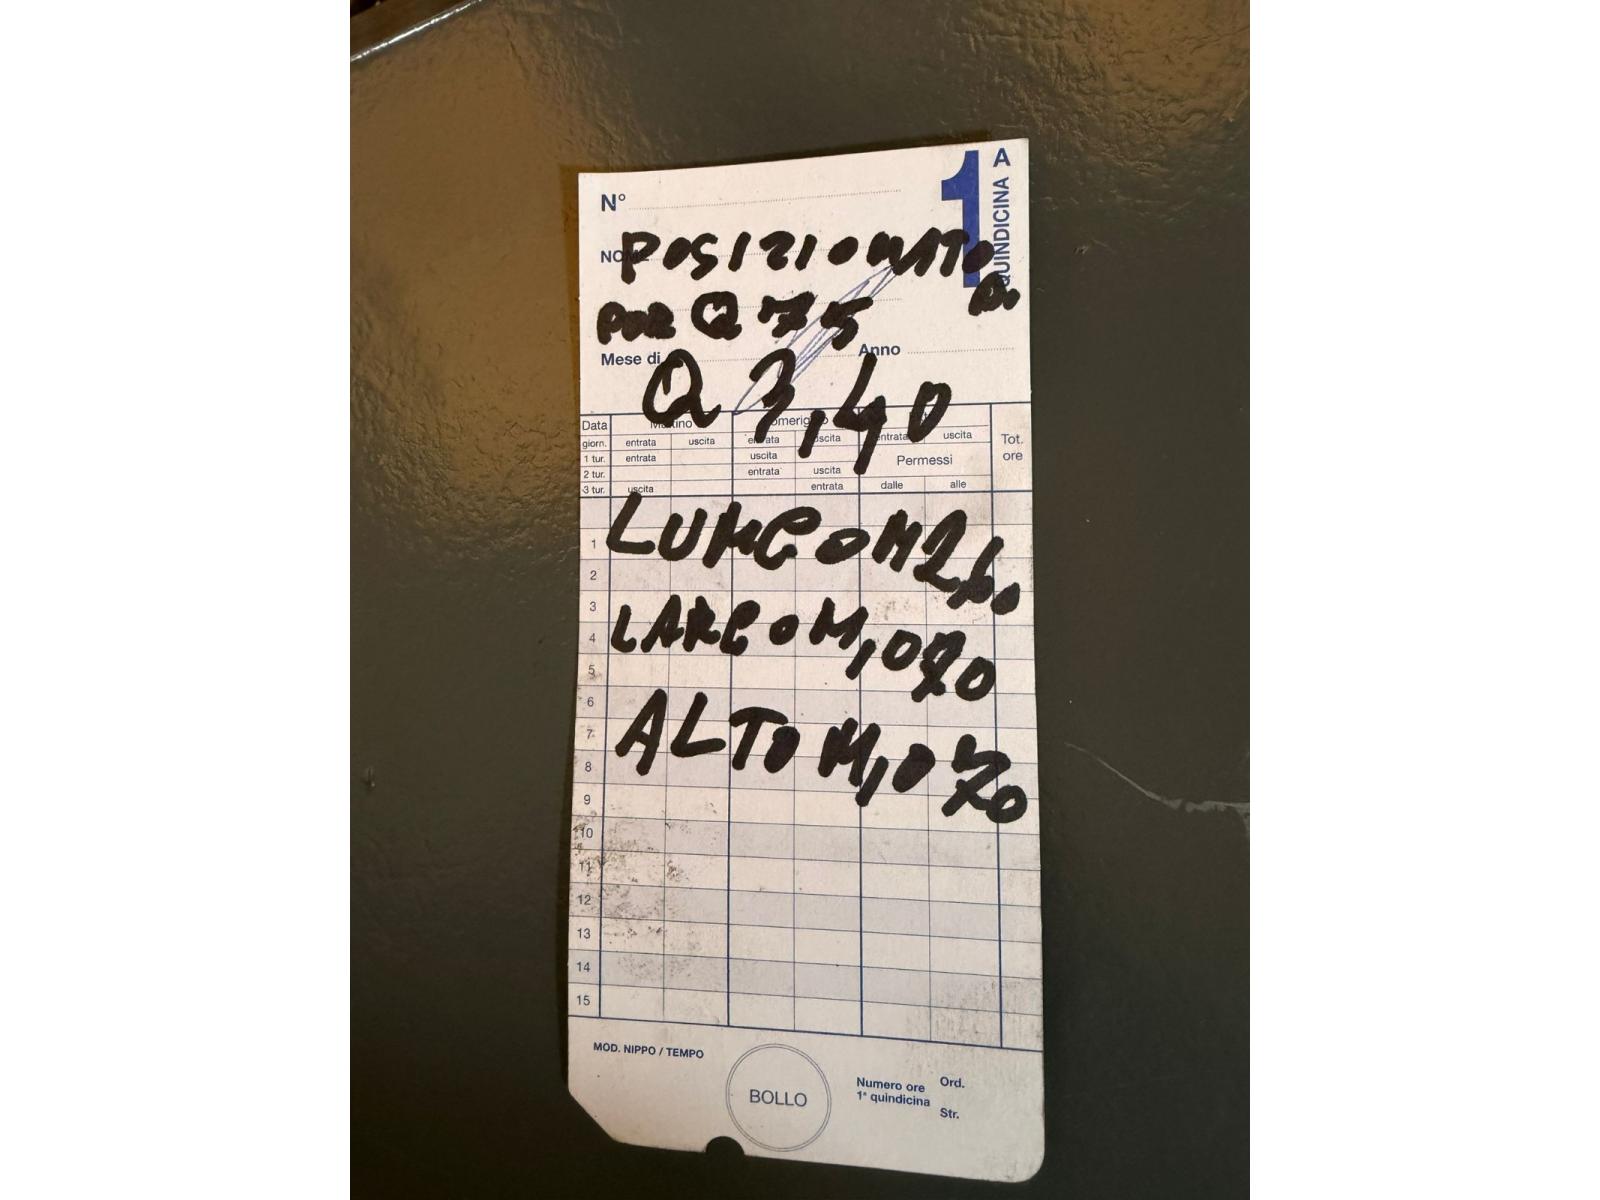 N°
1 A
QUINDICINA
NOME
POSIZIONATO
POR Q 75
Mese di
Anno
Q 3,40
Data
Mattino
Pomeriggio
giorn. entrata uscita entrata uscita entrata uscita
Tot. ore
1 tur. entrata uscita
Permessi
2 tur. entrata uscita
3 tur. uscita entrata dalle alle
LUNGO M2
1
2
LARGO M,070
3
4
5
6
ALTO M,070
7
8
9
10
11
12
13
14
15
MOD. NIPPO / TEMPO
BOLLO
Numero ore Ord.
1ª quindicina Str.